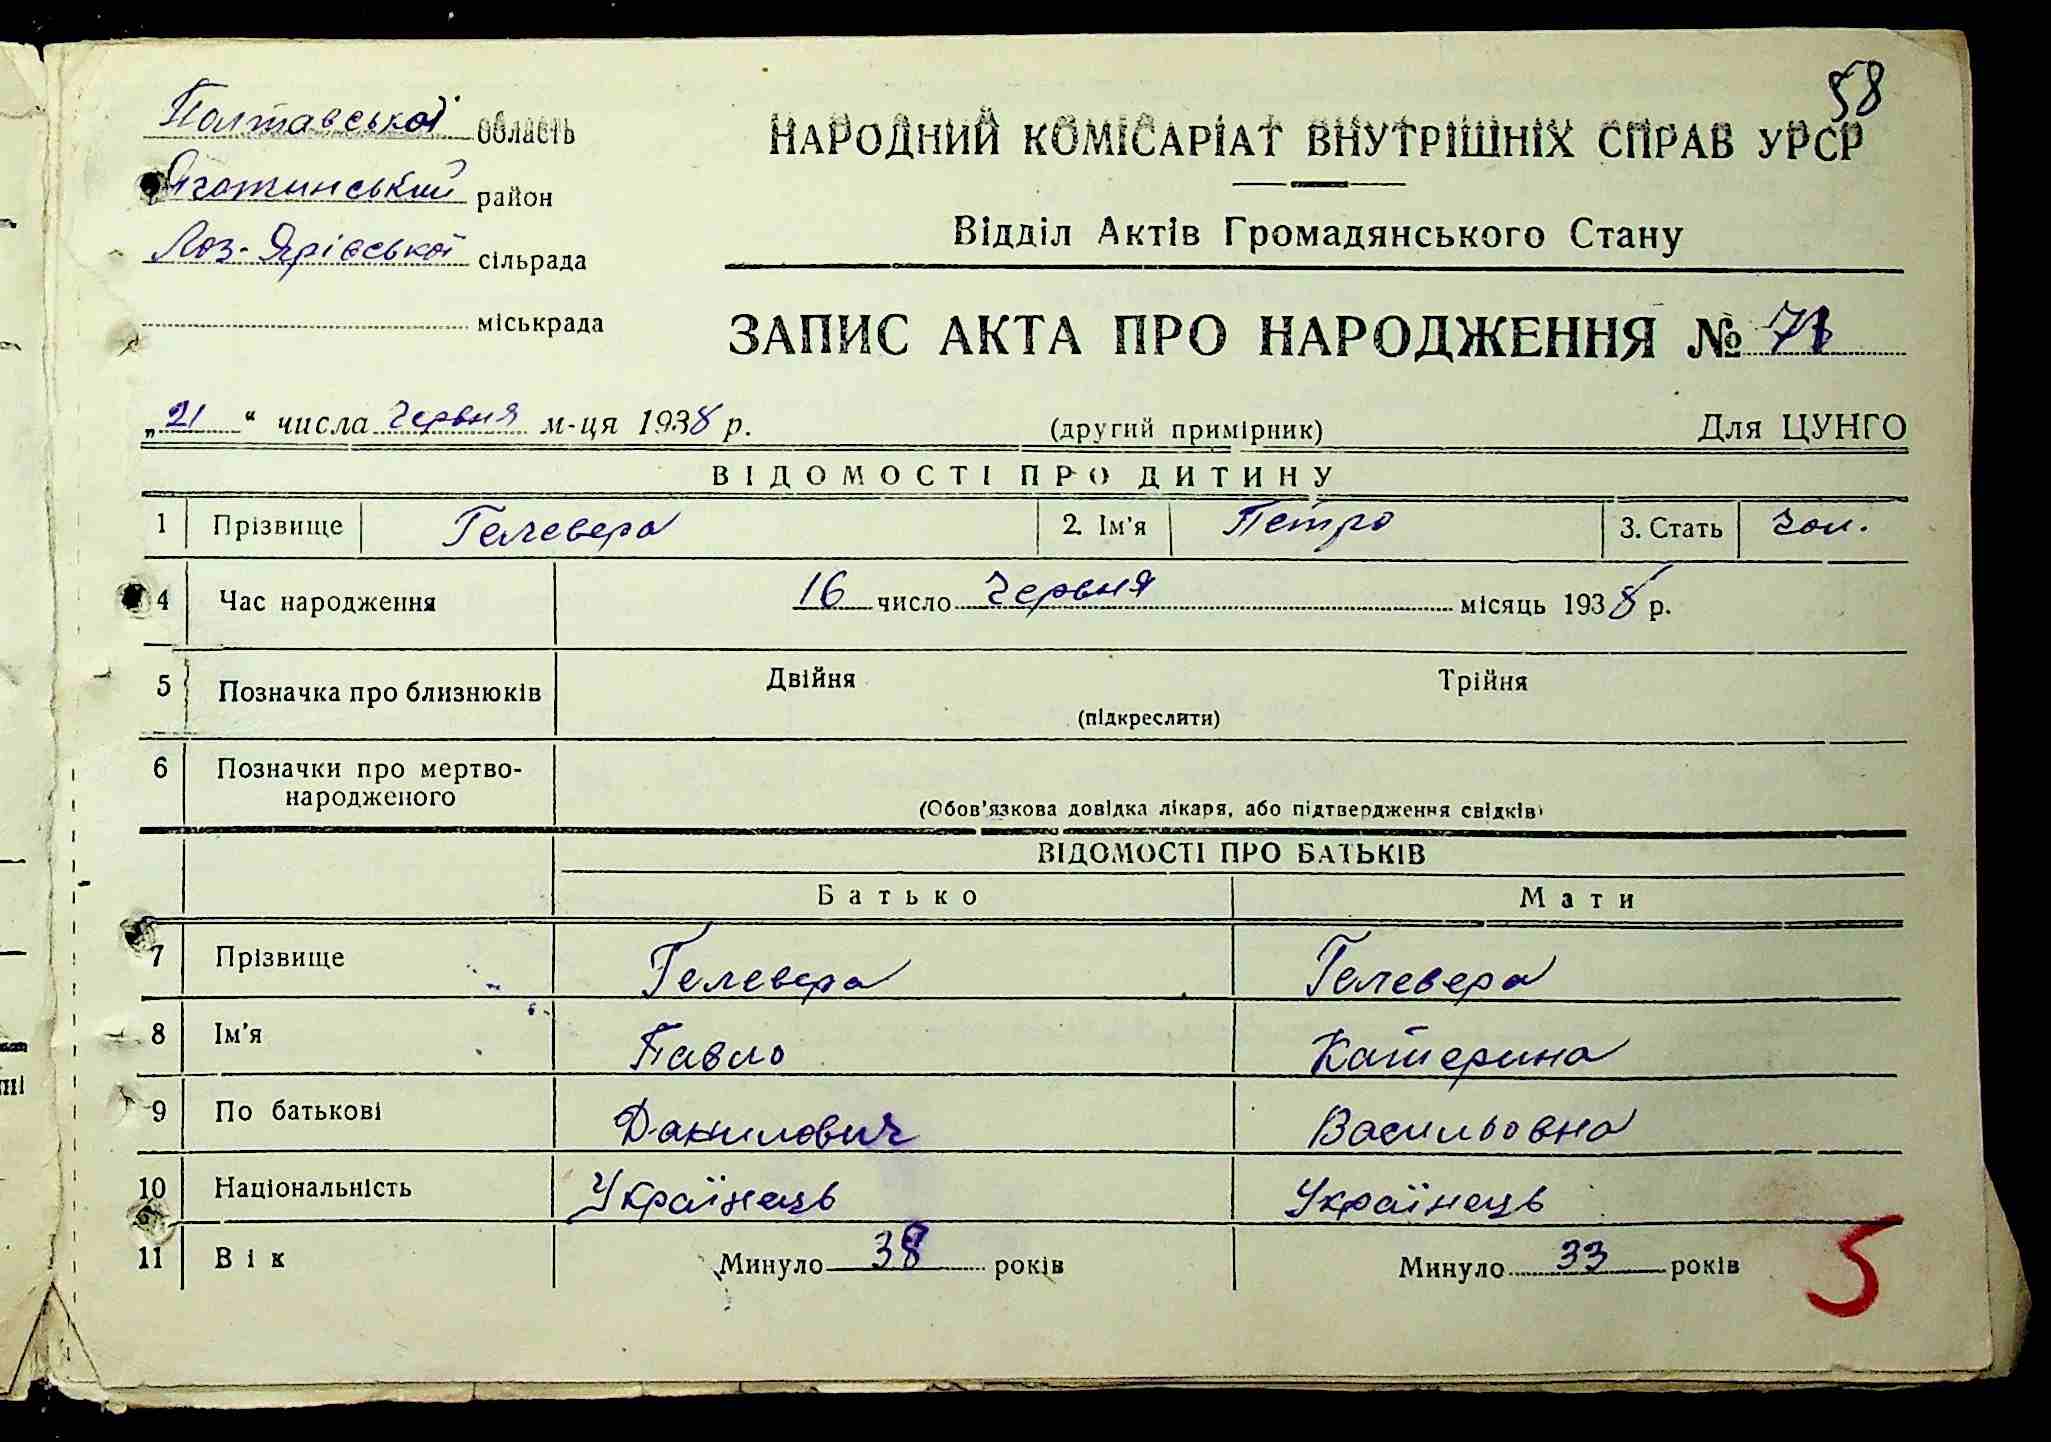 58
Полтавської область
Яготинський район
Лоз-Ярівської сільрада
міськрада
НАРОДНИЙ КОМІСАРІАТ ВНУТРІШНІХ СПРАВ УРСР
Відділ Актів Громадянського Стану
ЗАПИС АКТА ПРО НАРОДЖЕННЯ № 71
„21“ числа червня м-ця 1938 р. (другий примірник) Для ЦУНГО
ВІДОМОСТІ ПРО ДИТИНУ
1 Прізвище Гелевера 2. Ім'я Петро 3. Стать чол.
4 Час народження 16 число червня місяць 1938 р.
5 Позначка про близнюків Двійня Трійня
(підкреслити)
6 Позначки про мертво-
народженого
(Обов'язкова довідка лікаря, або підтвердження свідків)
ВІДОМОСТІ ПРО БАТЬКІВ
Батько Мати
7 Прізвище Гелевера Гелевера
8 Ім'я Павло Катерина
9 По батькові Данилович Васильовна
10 Національність Українець Українець
11 Вік Минуло 38 років Минуло 33 років
5